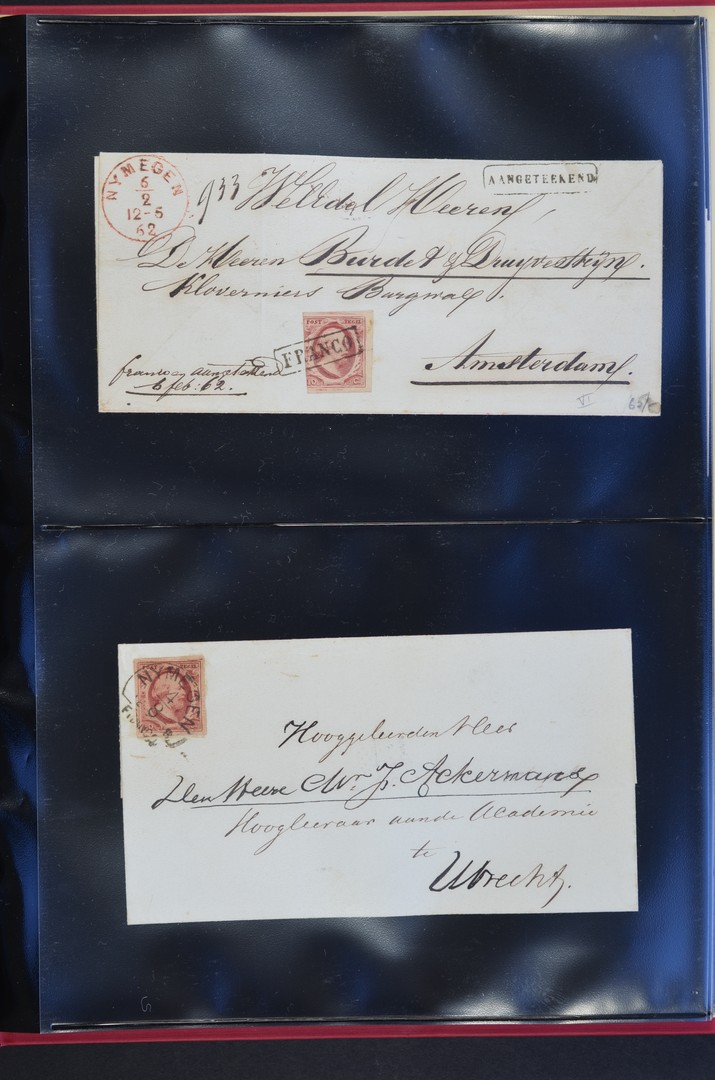 NYMEGEN
6
2
12-5
62
933
AANGETEEKEND
WelEdel Heeren,
De Heeren Burdet & Druyvesteyn.
Kloveniers Burgwal.
POST ZEGEL
FRANCO
Amsterdam.
franco en aangeteekend
6 feb: 62.
VI
65/-
NYMEGEN
4
8
FRANCO
Hooggeleerden Heer
Den Heere Mr. J. Ackermans
Hoogleeraar aan de Academie
te
Utrecht.